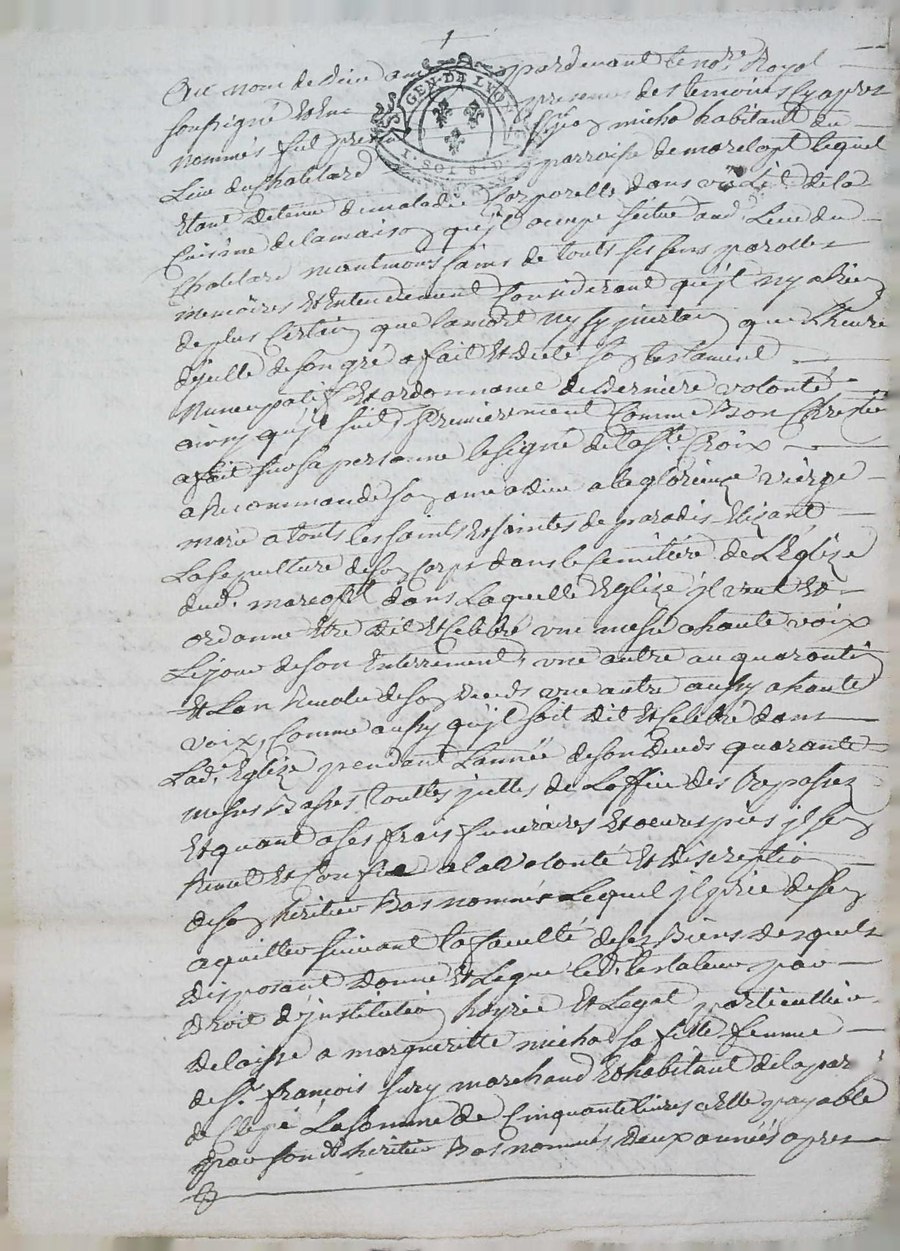 1
GEN. DE LYON
1. SOL 8 D.
Au nom de dieu amen pardevant le no.re Royal
soussigné et en presence des temoins cy apres
nommés fut present micha habitant du
Lieu du Chatelard parroise de marclopt lequel
Etant detenu de maladie Corporelle dans un lit de la
Cuisine de la maison qu'jl ocupe scitue aud. Lieu du
Chatelard neantmoins sains de touts ses sens parolles
memoires Et Entendement Considerant qu'jl ny a Rien
de plus Certain que la mort ny sy jncertain que L'heure
d'jcelle de son gré a fait Et dicté son testament
Nuncupatif Et ordonnance de derniere volonté
ainsy qu'jl suit Premierement Comme Bon Chretien
a fait sur sa personne le signe de la S.te Croix
a Recommandé son ame a dieu a la glorieuze vierge
marie a touts les saints Et saintes de paradis Elizant
La sepulture de son Corps dans le Cemitiére de L'Eglize
dud. marclopt dans Laquelle Eglize jl veut Et
ordonne Etre dit Et Celebré une messe a haute voix
Le jour de son Enterrement, une autre au quarantin
Et L'an Revolu de son deceds une autre aussy a haute
voix, Comme aussy qu'jl soit dit Et Celebré dans
Lad. Eglize pendant L'année de son deceds quarante
messes Basses touttes jcelles de L'office des Trepassez
Et quant a ses frais funeraires Et oeuvres pies jl s'en
Remet Et Confie a la volonté Et discreption
de son heritier Bas nommé Lequel jl prie de s'en
aquitter suivant la faculté de ses Biens desquels
disposant donne Et Legue led. testateur par
droit d'jnstitution hoyrie Et Legat particullier
delaisse a margueritte micha sa fille femme
de S.r francois Sury marchand Et habitant de la par.
de Clepé La somme de Cinquante livres a Elle payable
par sond. heritier Bas nommé deux années apres